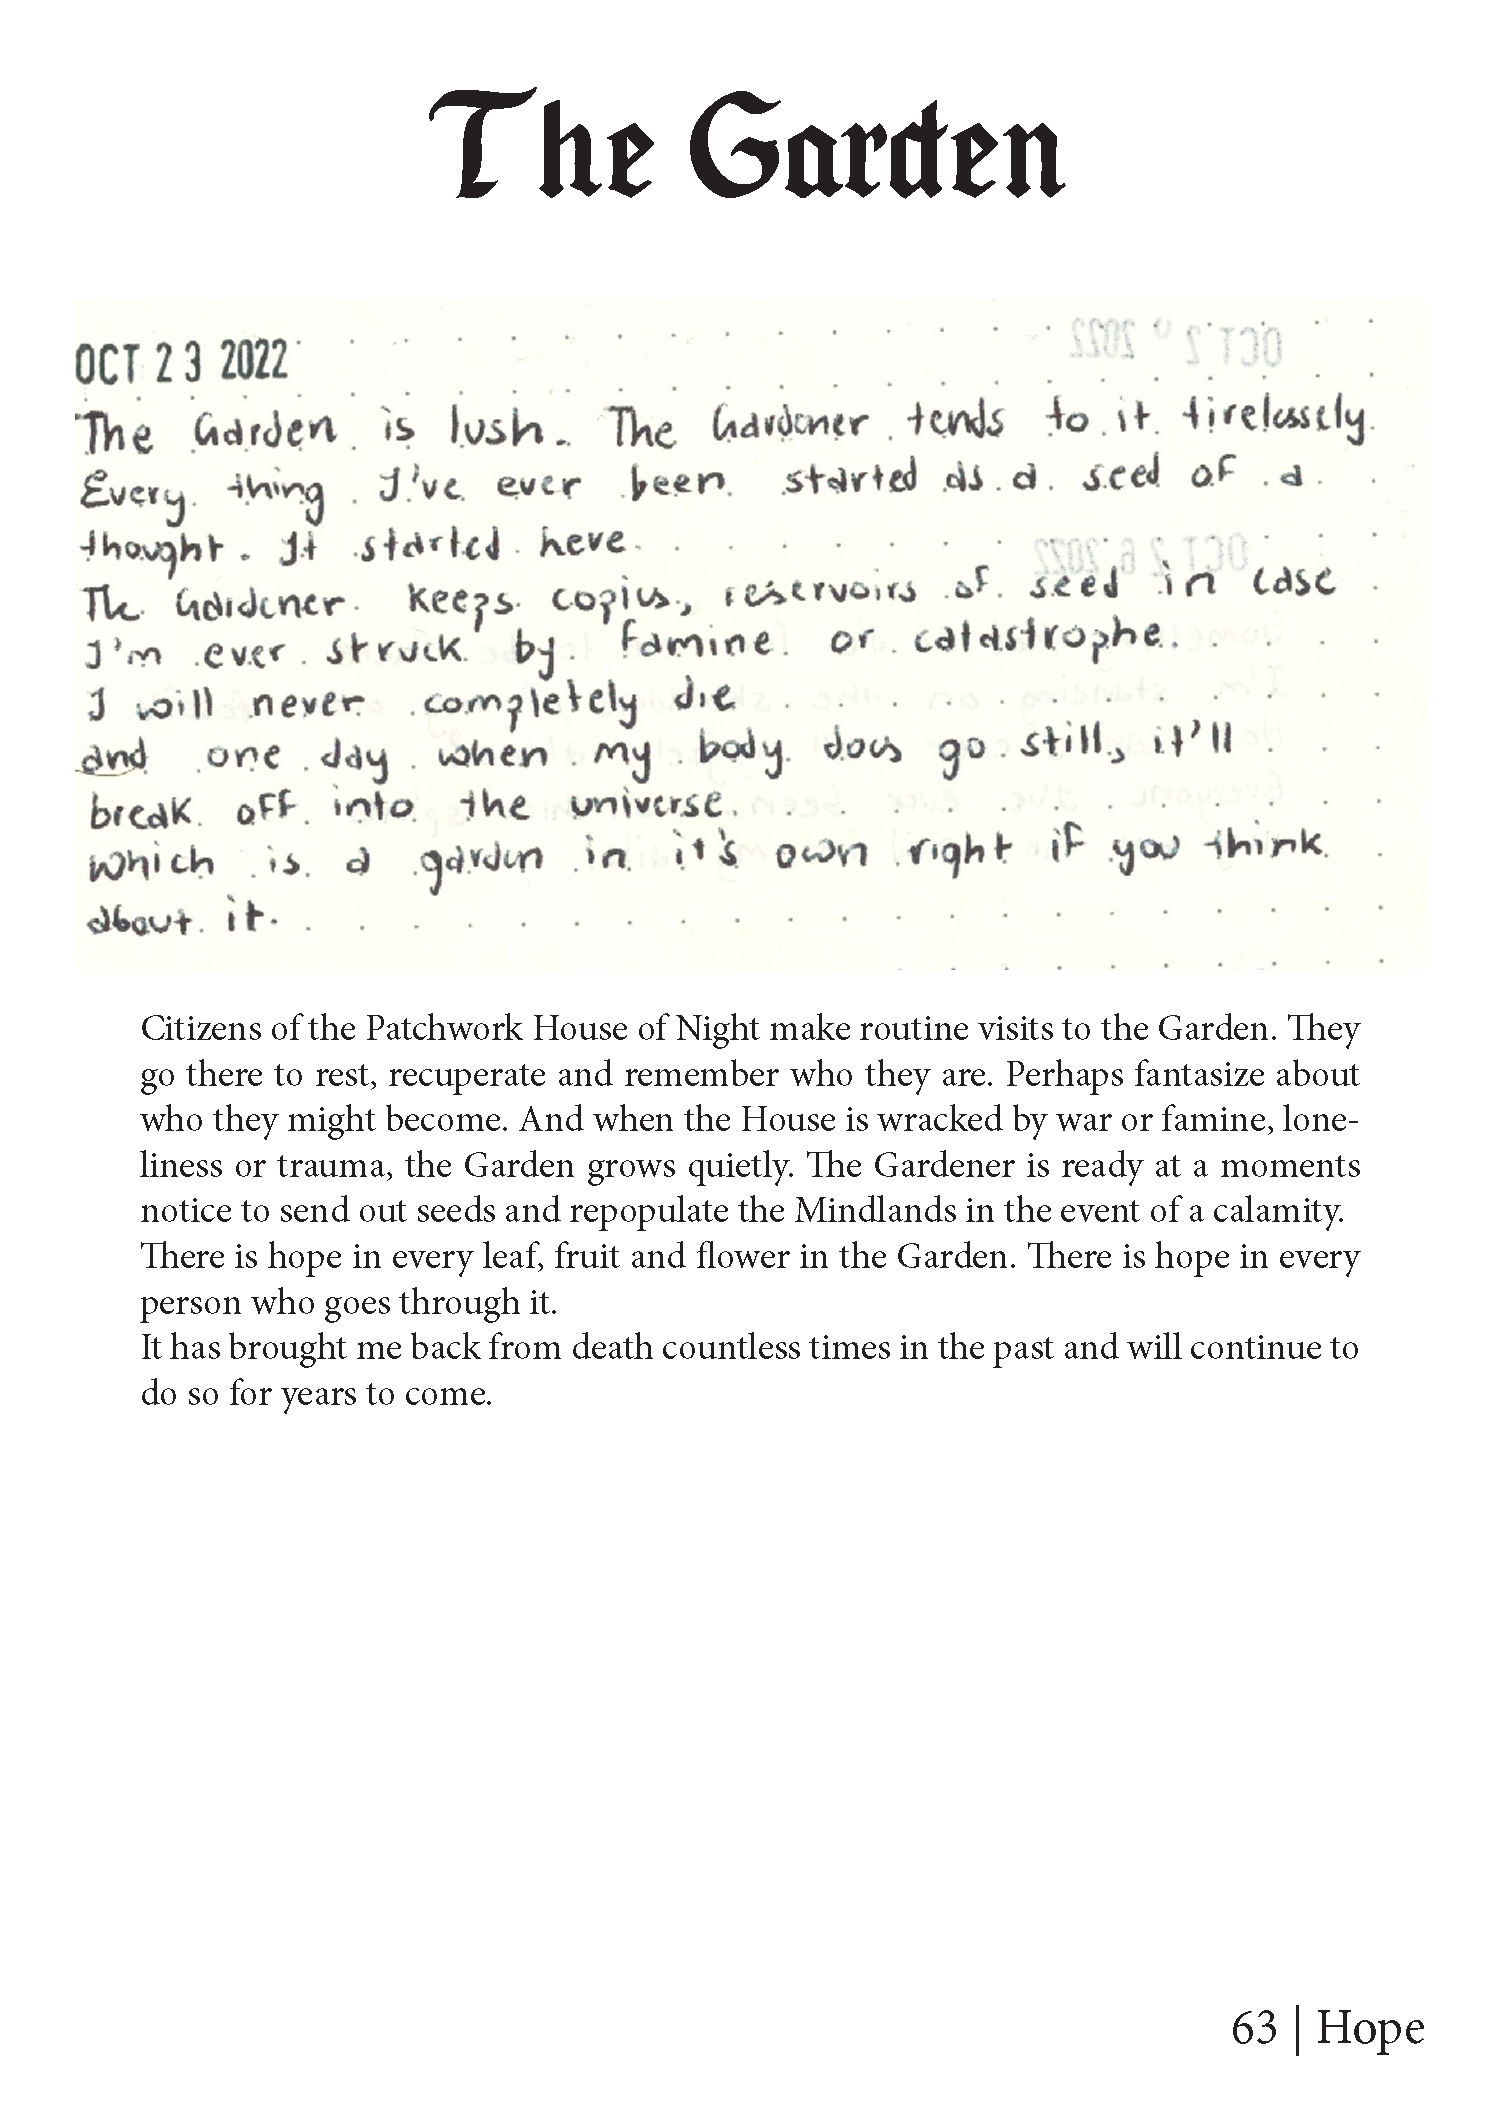 The Garden
OCT 23 2022
The Garden is lush. The Gardener tends to it tirelessely.
Every thing I've ever been started as a seed of a
thought. It started here.
The Gardener keeps copies, reservoirs of seed in case
I'm ever struck by famine or catastrophe.
I will never completely die
and one day when my body does go still, it'll
break off into the universe.
Which is a garden in it's own right if you think
about it.
Citizens of the Patchwork House of Night make routine visits to the Garden. They
go there to rest, recuperate and remember who they are. Perhaps fantasize about
who they might become. And when the House is wracked by war or famine, lone-
liness or trauma, the Garden grows quietly. The Gardener is ready at a moments
notice to send out seeds and repopulate the Mindlands in the event of a calamity.
There is hope in every leaf, fruit and flower in the Garden. There is hope in every
person who goes through it.
It has brought me back from death countless times in the past and will continue to
do so for years to come.
63 | Hope